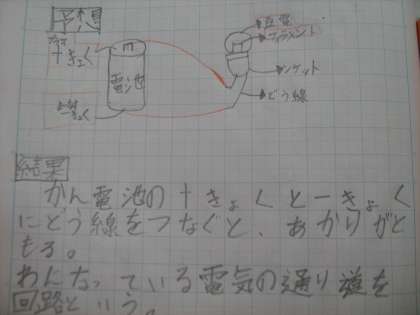 予想
プラス
+きょく
電池
豆電
フィラメント
ソケット
どう線
結果
かん電池の+きょくと−きょく
にどう線をつなぐと、あかりがと
もる。
わんなっている電気の通り道を
回路という。